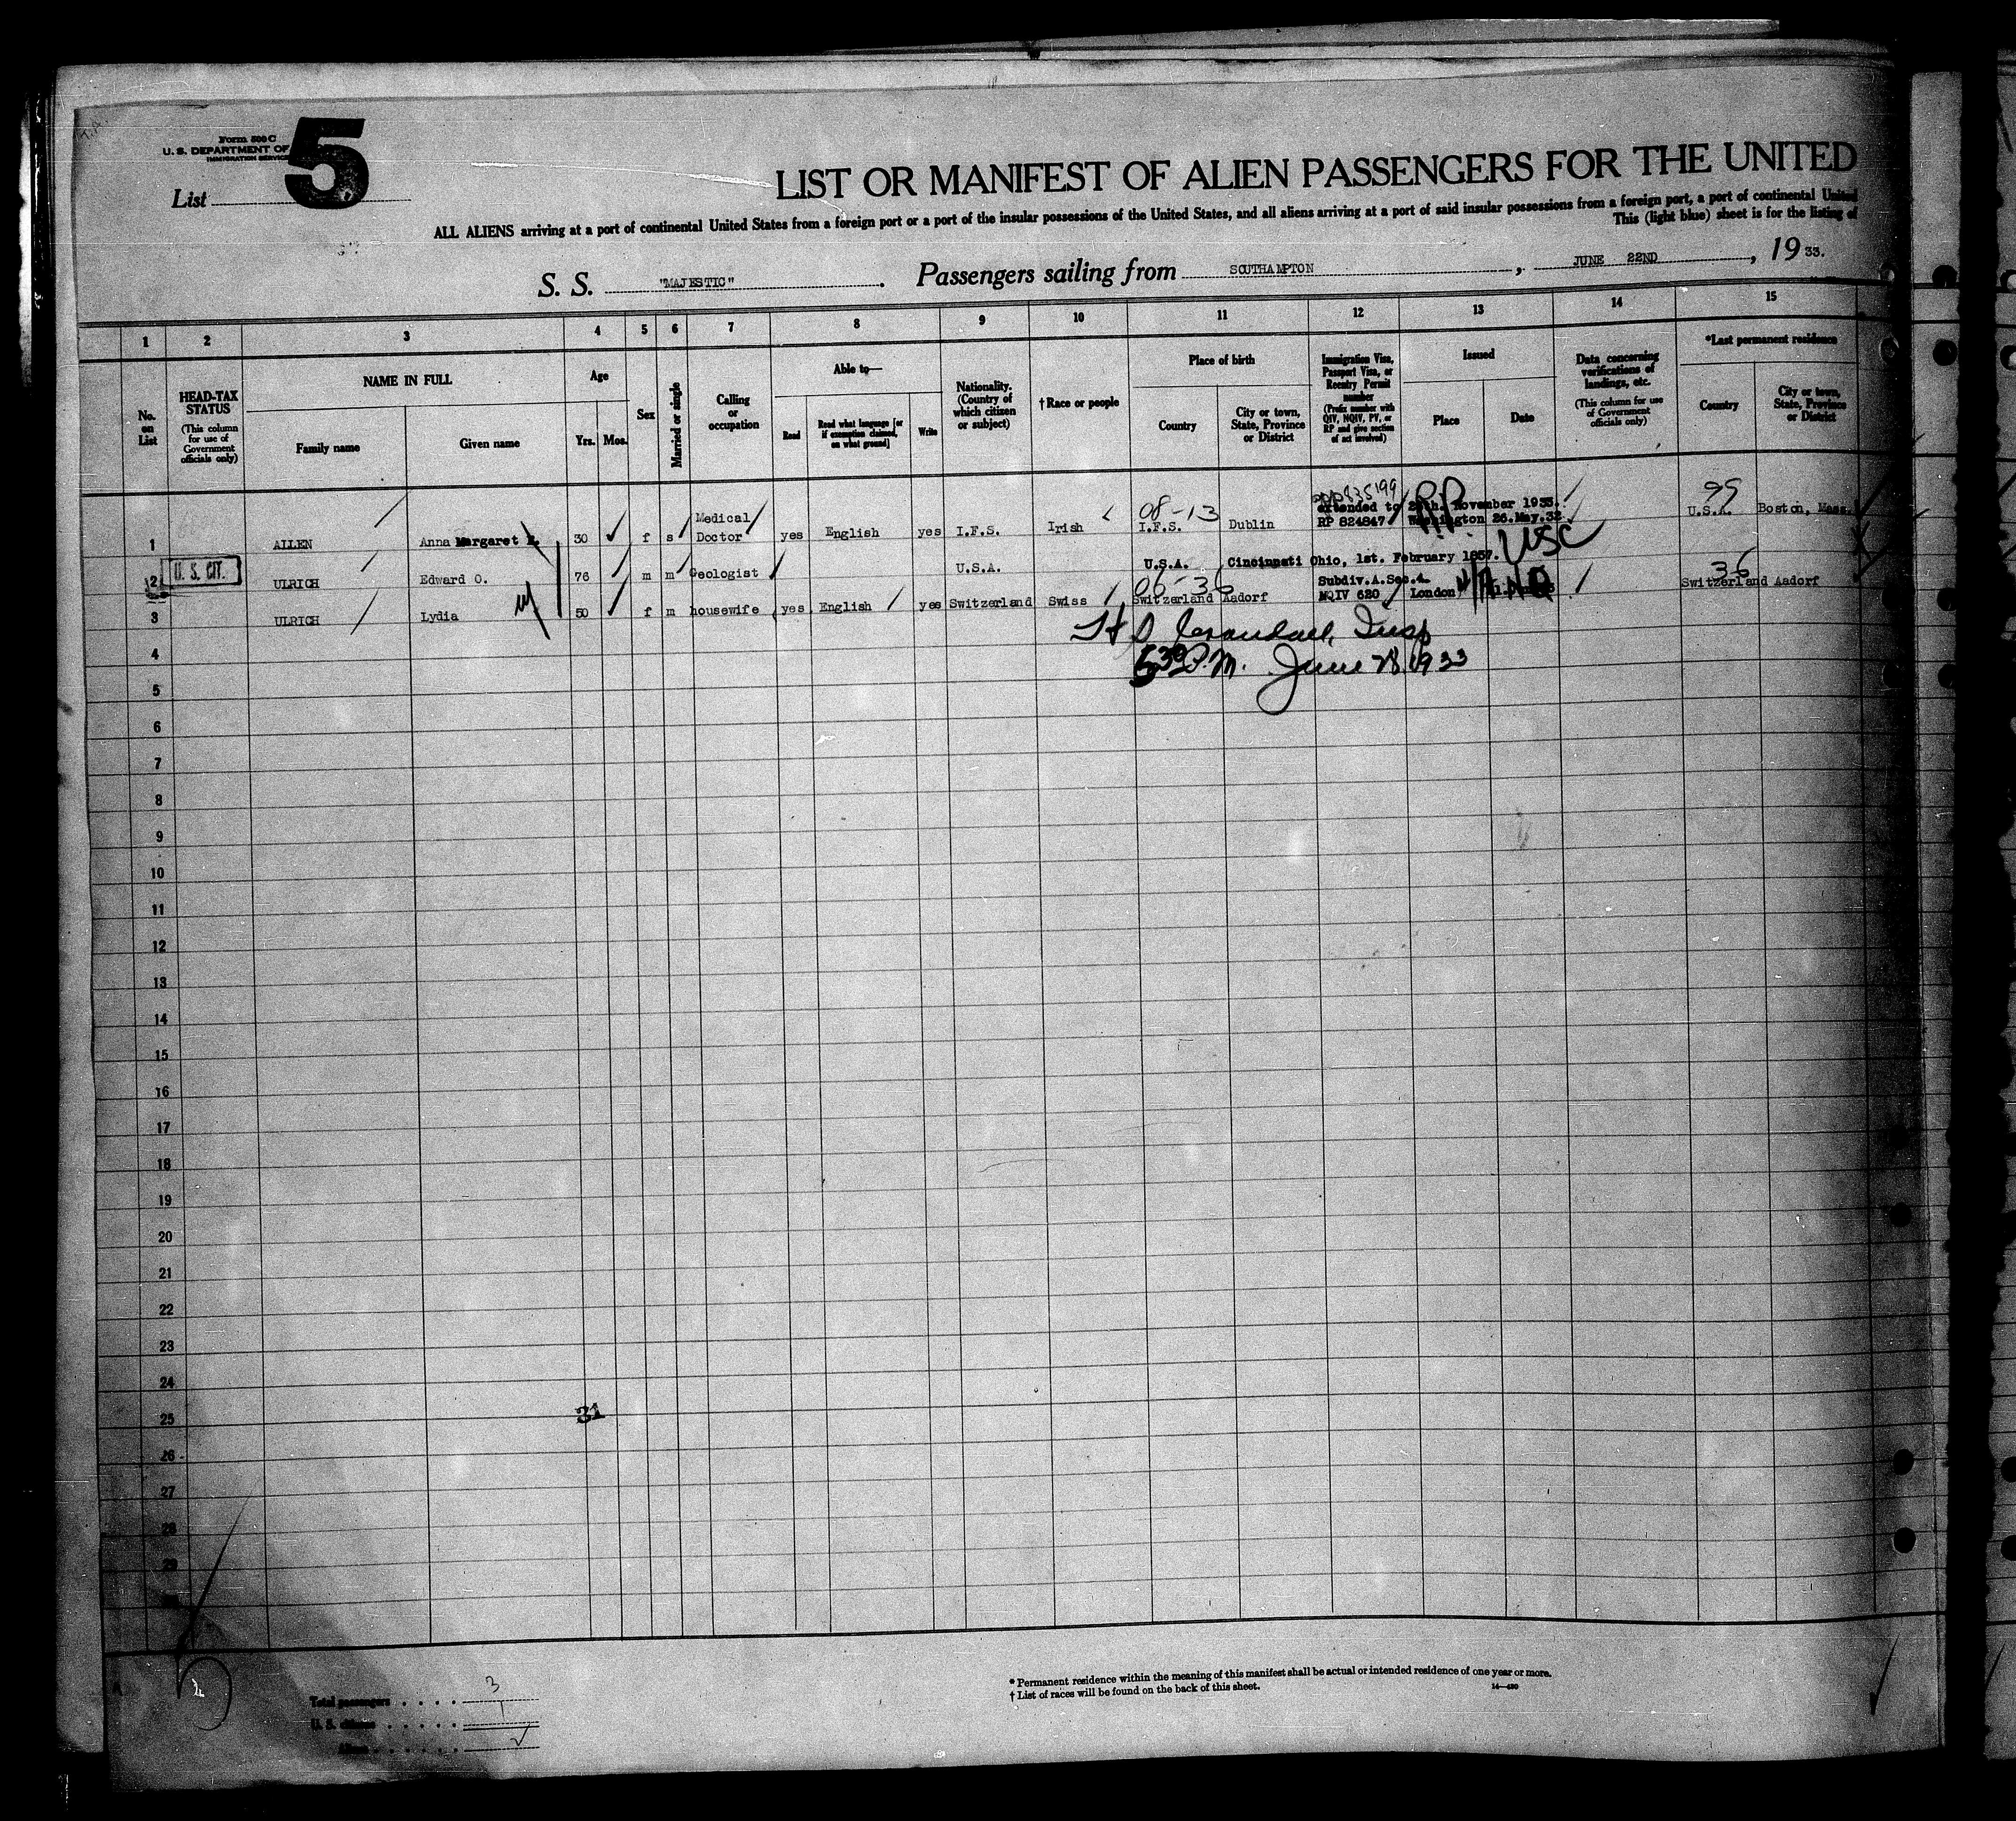 Form 500 C
U. S. DEPARTMENT OF
IMMIGRATION SERVICE
5
List
LIST OR MANIFEST OF ALIEN PASSENGERS FOR THE UNITED
ALL ALIENS arriving at a port of continental United States from a foreign port or a port of the insular possessions of the United States, and all aliens arriving at a port of said insular possessions from a foreign port, a port of continental United
This (light blue) sheet is for the listing of
S. S. "MAJESTIC". Passengers sailing from SOUTHAMPTON, JUNE 22ND, 19 33.
1 2 3 4 5 6 7 8 9 10 11 12 13 14 15
No. on List
HEAD-TAX STATUS (This column for use of Government officials only)
NAME IN FULL
Family name
Given name
Age
Yrs. Mos.
Sex
Married or single
Calling or occupation
Able to—
Read
Read what language [or if exemption claimed, on what ground]
Write
Nationality. (Country of which citizen or subject)
† Race or people
Place of birth
Country
City or town, State, Province or District
Immigration Visa, Passport Visa, or Reentry Permit number (Prefix number with QIV, NQIV, PV, or RP and give section of act involved)
Issued
Place
Date
Data concerning verifications of landings, etc. (This column for use of Government officials only)
*Last permanent residence
Country
City or town, State, Province or District
08-13 RP 99
Medical extended to November 1933.
1 ALLEN Anna Margaret 30 f s Doctor yes English yes I.F.S. Irish I.F.S. Dublin RP 824847 Washington 26.May.32. U.S.A. Boston, Mass.
USC
2 U. S. CIT. ULRICH Edward O. 76 m m Geologist U.S.A. U.S.A. Cincinnati Ohio, 1st. February 1857.
06-36 Subdiv.A.Sec.4. 36
3 ULRICH Lydia 50 f m housewife yes English yes Switzerland Swiss Switzerland Aadorf NQIV 620 London Switzerland Aadorf
4 Insp
5 5 30 P.M. June 28, 1933
6
7
8
9
10
11
12
13
14
15
16
17
18
19
20
21
22
23
24
25 31
26
27
28
29
30
* Permanent residence within the meaning of this manifest shall be actual or intended residence of one year or more.
† List of races will be found on the back of this sheet.
14—430
Total passengers . . . . 3
U. S. citizens . . . . . 1
Aliens . . . . . .